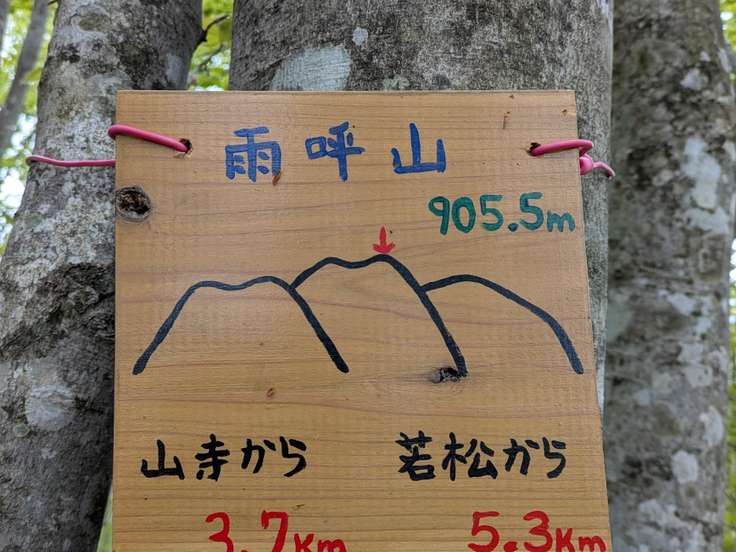 雨呼山
905.5m
山寺から 若松から
3.7Km 5.3Km